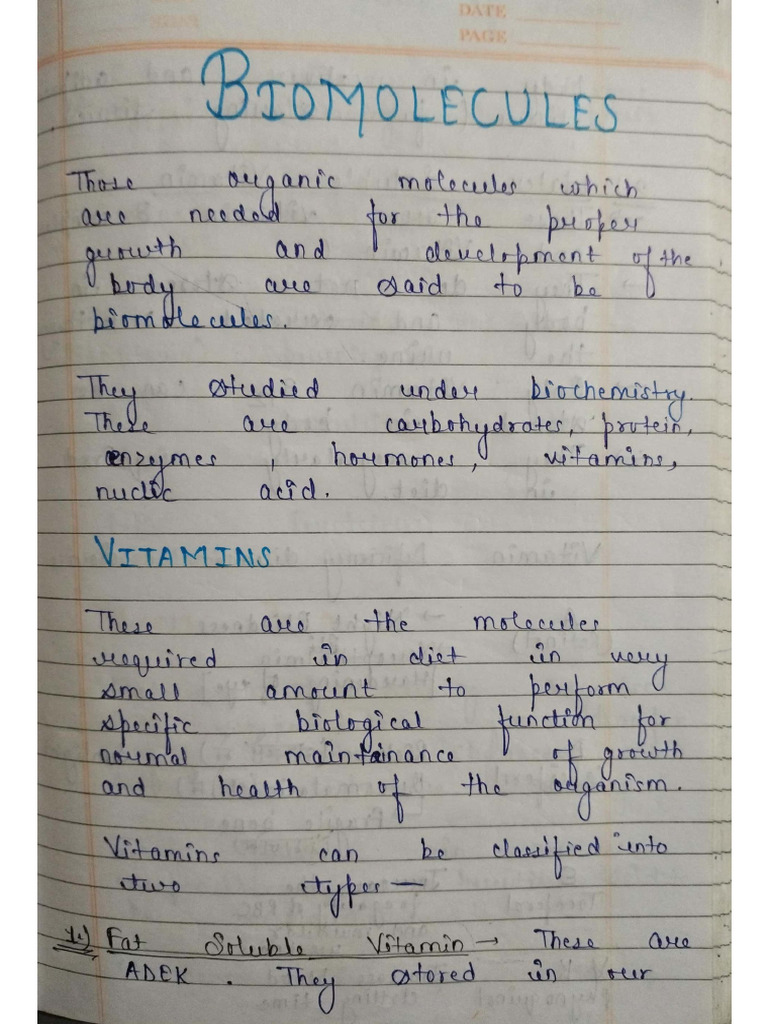 DATE
PAGE
BIOMOLECULES
Those organic molecules which
are needed for the proper
growth and development of the
body are said to be
biomolecules.
They studied under biochemistry.
These are carbohydrates, protein,
enzymes , hormones, vitamins,
nuclic acid.
VITAMINS
These are the molecules
required in diet in very
small amount to perform
specific biological function for
normal maintainance of growth
and health of the organism.
Vitamins can be classified into
two types —
1.) Fat Soluble Vitamin → These are
ADEK . They stored in our